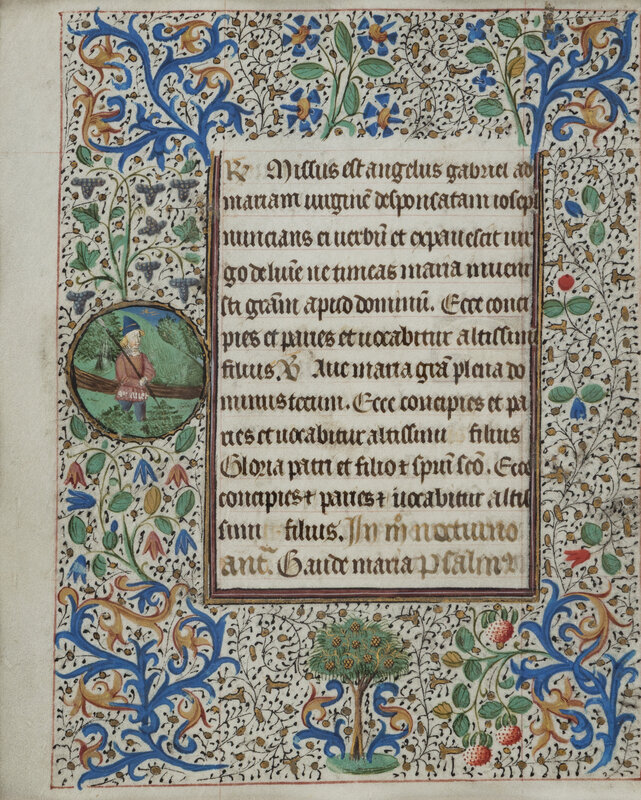 R̄ Missus est angelus gabriel ad
mariam uirginē desponsatam ioseph
nuncians ei uerbū et expauescit uir
go de lumīe ne timeas maria inueni
sti grām apud dominum. Ecce conci
pies et paries et uocabitur altissimi
filius. V̄ Aue maria grā plena do
minus tecum. Ecce concipies et pa
ries et uocabitur altissimi filius
Gloria patri et filio ⁊ spiui scō. Ecce
concipies ⁊ paries ⁊ uocabitur altis
simi filius. In m̄ nocturno
ant̄. Gaude maria Psalm